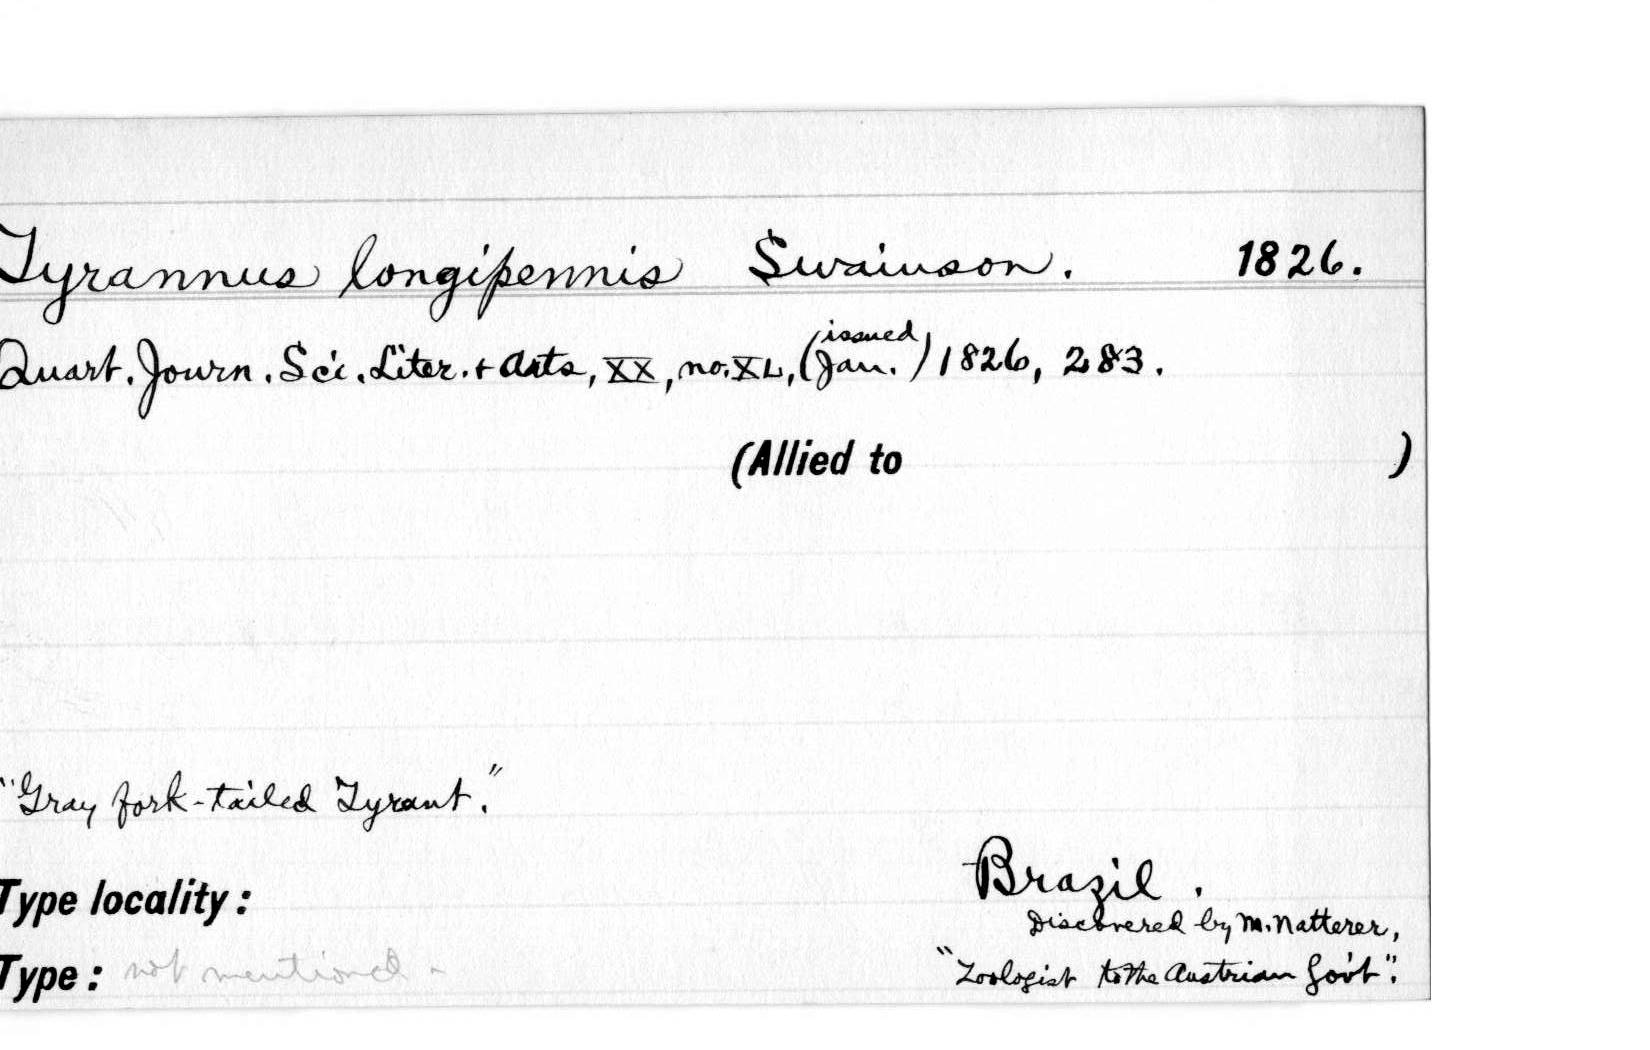 Tyrannus longipennis Swainson. 1826.
Quart. Journ. Sci. Liter. + Arts, XX, no. XL, (issued Jan.) 1826, 283.
(Allied to )
"Gray fork-tailed Tyrant."
Brazil.
Type locality:
Discovered by M. Natterer,
Type: not mentioned - "Zoologist to the Austrian Gov't".